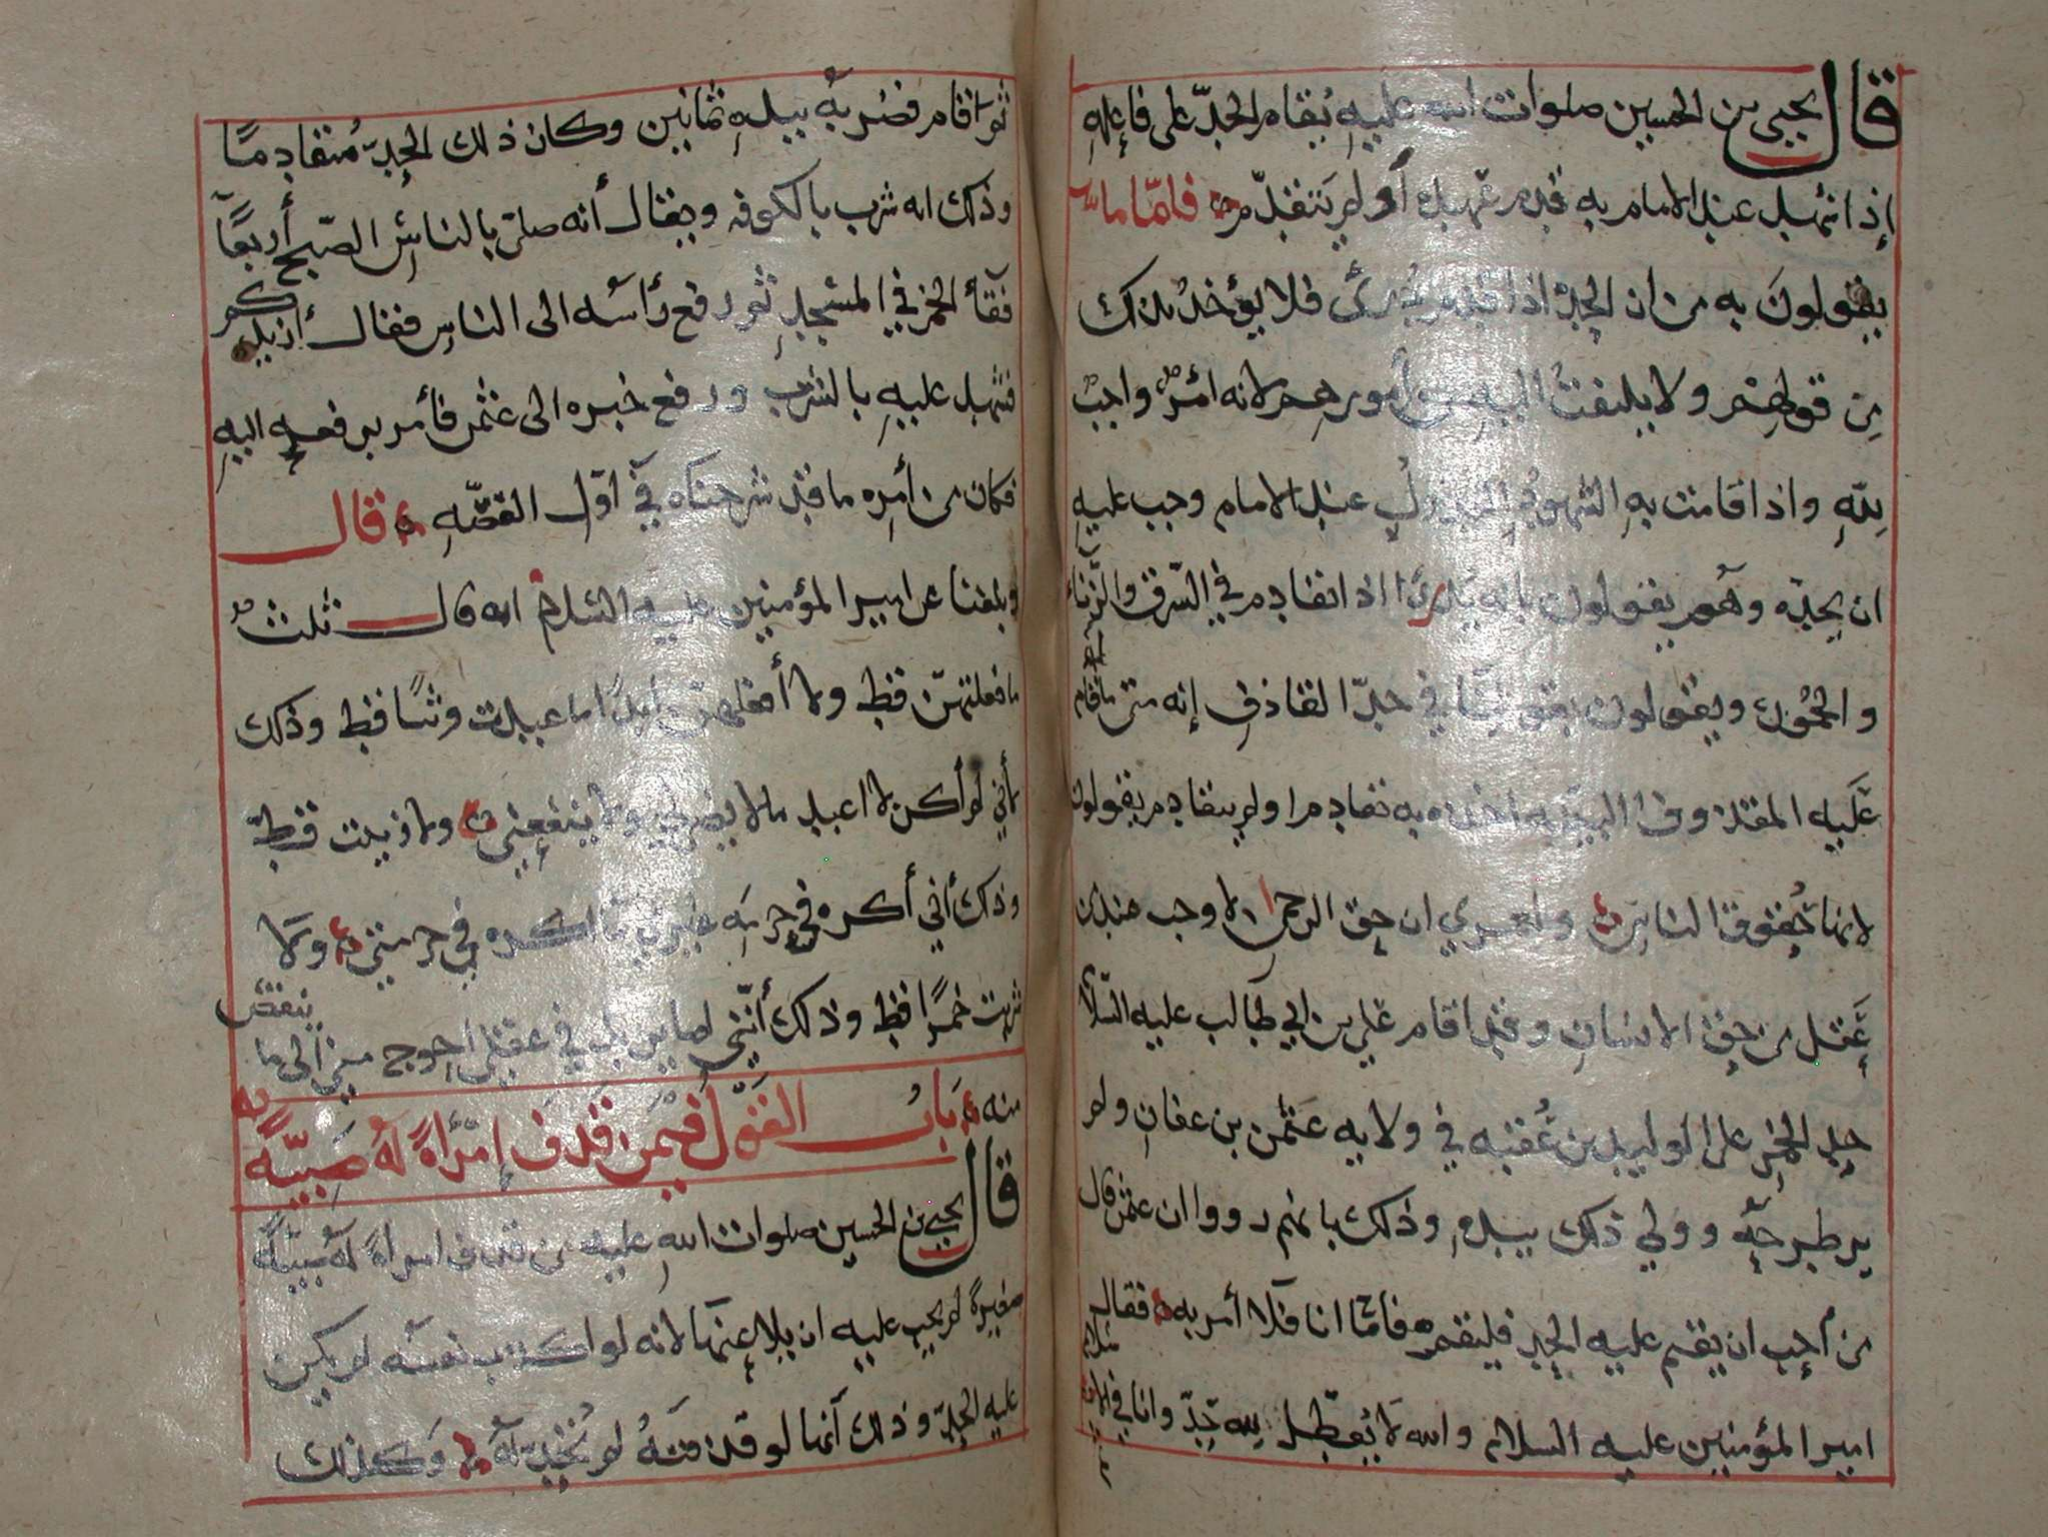 قال يحيى بن الحسين صلوات الله عليه يقام الحد على فاعله
إذا شهد عند الامام به قدم عهده أو لم يتقدم فأما ما
يقولون به من ان الحد اذا قدم دُرئ فلا يؤخذ بذلك
من قولهم ولا يلتفت اليه من أمورهم لانه امرٌ واجبٌ
لله واذا قامت به الشهود العدول عند الامام وجب عليه
ان يحده وهم يقولون بانه يدرأ اذا تقادم في السرق والزناء
والخمور ويقولون بقولنا في حد القاذف إنه متى ما أقام
عليه المقذوف البينة اخذه به تقادم او لم يتقادم يقولون
لانها حقوق الناس ولعمري ان حق الرحمن لاوجب عندي
عقل من حق الانسان وقد اقام علي بن ابي طالب عليه السلام
حد الخمر على الوليد بن عُقبه في ولايه عثمن بن عفان ولم
يرطبر حه وولي ذلك بيده وذلك بانهم رووا ان عثمن قال
من أحب ان يقيم عليه الحد فليقم فأما انا فلا أمر به فقال
امير المؤمنين عليه السلام والله لا يُعطل لله حدّ وانا في
ثم اقام فضربه بيده ثمانين وكان ذلك الحد مُتقادمًا
وذلك انه شرب بالكوفه ويقال أنه صلى بالناس الصبح أربعًا
فقأ الخمر في المسجد ثم رفع رأسه الى الناس فقال أزيدكم
فشهد عليه بالشرب ورفع خبره الى عثمن فأمر برفعه اليه
فكان من أمره ما قد شرحناه في اول القصه قال
وبلغنا عن امير المؤمنين عليه السلام انه قال ثلث
ما فعلتهن قط ولا أفعلهن ابدًا ما عبدت وثنًا قط وذلك
لأني لم أكن لا اعبد ما لا يضرني ولا ينفعني ولا زنيت قط
وذلك أني أكره في حرمه غيري ما اكره في حرمتي ولا
شربت خمرًا قط وذلك أنني لما يزيد في عقلي احوج مني الى ما ينقص
منه باب القول فيمن قذف إمرأةً له صبيّةً
قال يحيى بن الحسين صلوات الله عليه من قذف امراةً له صبيّةً
صغيرة لم يجب عليه ان يلاعنها لانه لو اكذب نفسه لم يكن
عليه الحد وذلك أنها لو قذفته لم تُحد له وكذلك